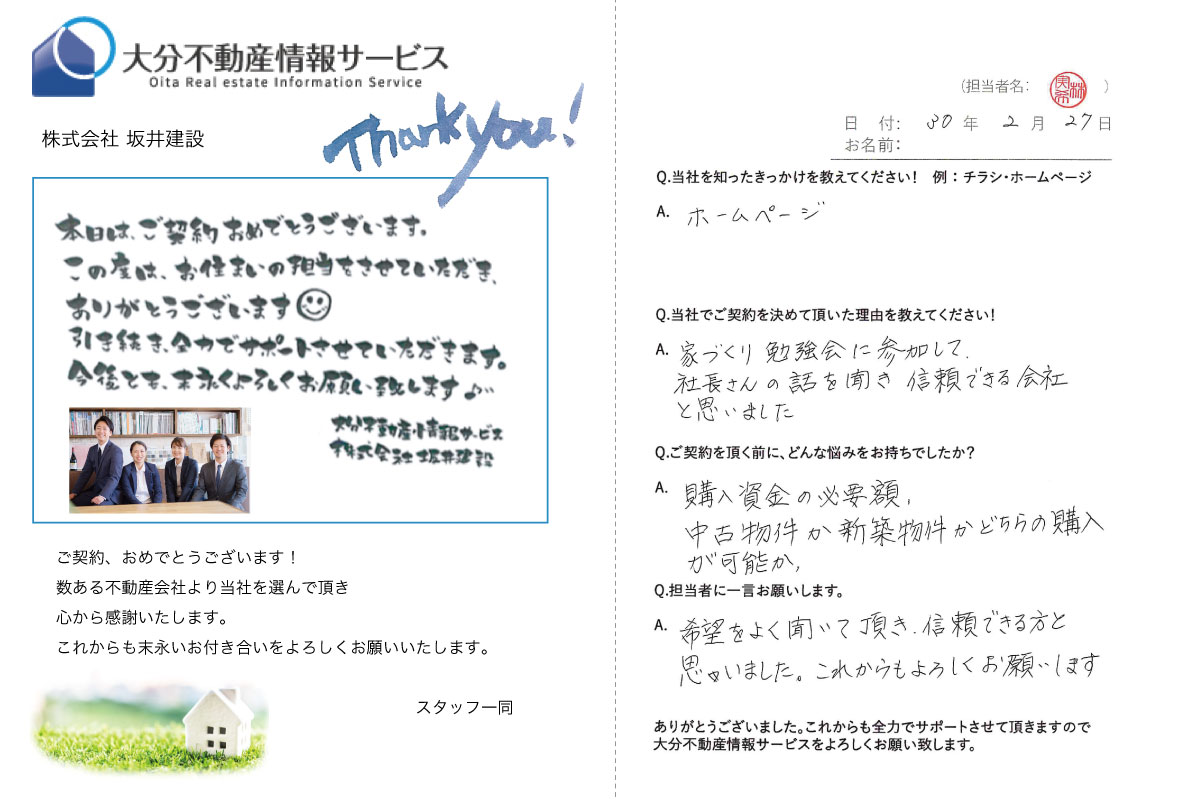 大分不動産情報サービス
Oita Real estate Information Service
株式会社 坂井建設
Thank you!
本日は、ご契約おめでとうございます。
この度は、お住まいの担当をさせていただき、
ありがとうございます
引き続き、全力でサポートさせていただきます。
今後とも、末永くよろしくお願い致します♪
大分不動産情報サービス
株式会社坂井建設
ご契約、おめでとうございます！
数ある不動産会社より当社を選んで頂き
心から感謝いたします。
これからも末永いお付き合いをよろしくお願いいたします。
スタッフ一同
（担当者名： ）
日 付： 30 年 2 月 27 日
お名前：
Q.当社を知ったきっかけを教えてください！ 例：チラシ・ホームページ
A. ホームページ
Q.当社でご契約を決めて頂いた理由を教えてください！
A. 家づくり勉強会に参加して、
社長さんの話を聞き 信頼できる会社
と思いました
Q.ご契約を頂く前に、どんな悩みをお持ちでしたか？
A. 購入資金の必要額、
中古物件か新築物件かどちらの購入
が可能か、
Q.担当者に一言お願いします。
A. 希望をよく聞いて頂き、信頼できる方と
思いました。これからもよろしくお願いします
ありがとうございました。これからも全力でサポートさせて頂きますので
大分不動産情報サービスをよろしくお願い致します。